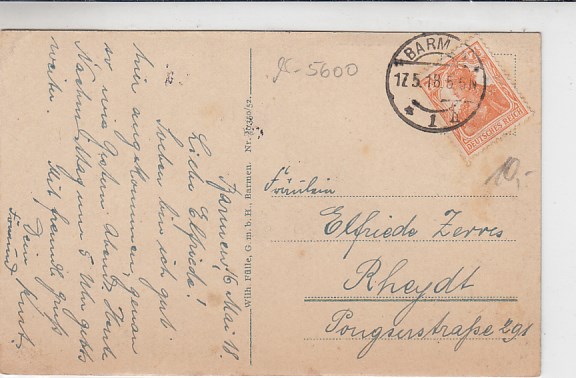 Barmen, 16 Mai 18.
Liebe Elfriede!
Soeben bin ich gut
hier angekommen, genau
so wie Gestern Abend. Heute
Nachmittag um 5 Uhr geht's
weiter. Mit freundl. Gruß
Dein
Freund Kurt.
Wilh. Fülle, G. m. b. H., Barmen. Nr.
K-5600
BARM
17.5.18.5-6N
* 1 h
DEUTSCHES REICH
10,-
Fräulein
Elfriede Zerres
Rheydt
Pongserstraße 291